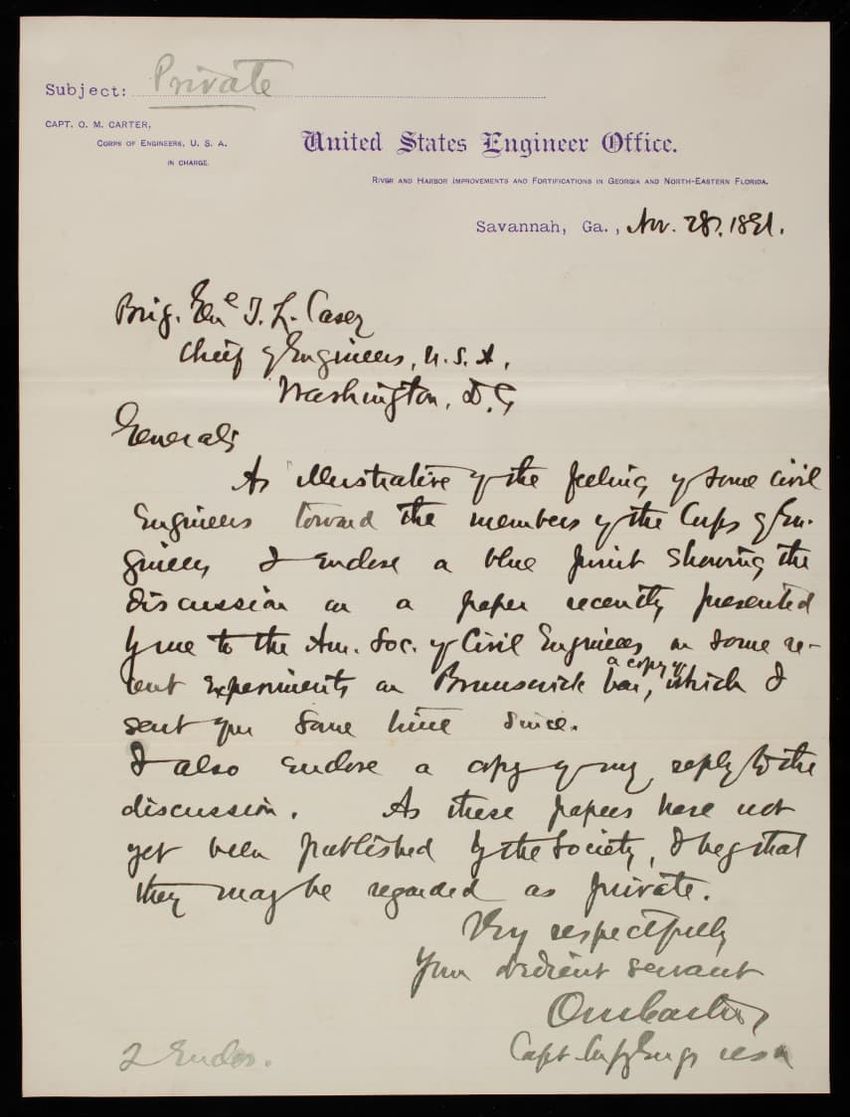 Subject: Private
CAPT. O. M. CARTER,
CORPS OF ENGINEERS, U. S. A.
IN CHARGE.
United States Engineer Office.
RIVER AND HARBOR IMPROVEMENTS AND FORTIFICATIONS IN GEORGIA AND NORTH-EASTERN FLORIDA.
Savannah, Ga., Nov. 28, 1891.
Brig. Gen<sup>l</sup> T. L. Casey
Chief of Engineers, U.S.A.,
Washington, D.C.
General;
As illustrative of the feeling of some civil
Engineers toward the members of the Corps of En-
gineers I enclose a blue print showing the
discussion on a paper recently presented
by me to the Am. Soc. of Civil Engineers on some re-
cent experiments on Brunswick bar, a copy of which I
sent you some time since.
I also enclose a copy of my reply to the
discussion. As these papers have not
yet been published by the Society, I beg that
they may be regarded as private.
Very respectfully
Your obedient servant
O M Carter
Capt. Corps of Engrs USA
2 Enclos.